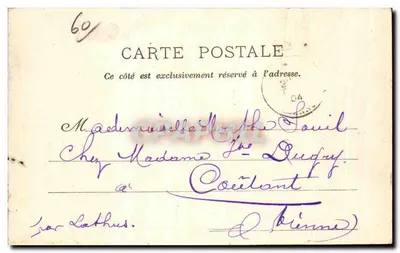 60/
CARTE POSTALE
Ce côté est exclusivement réservé à l'adresse.
04
Mademoiselle Marthe
Chez Madame Vve Dugey
à Coûtant
par Lathus. (Vienne)